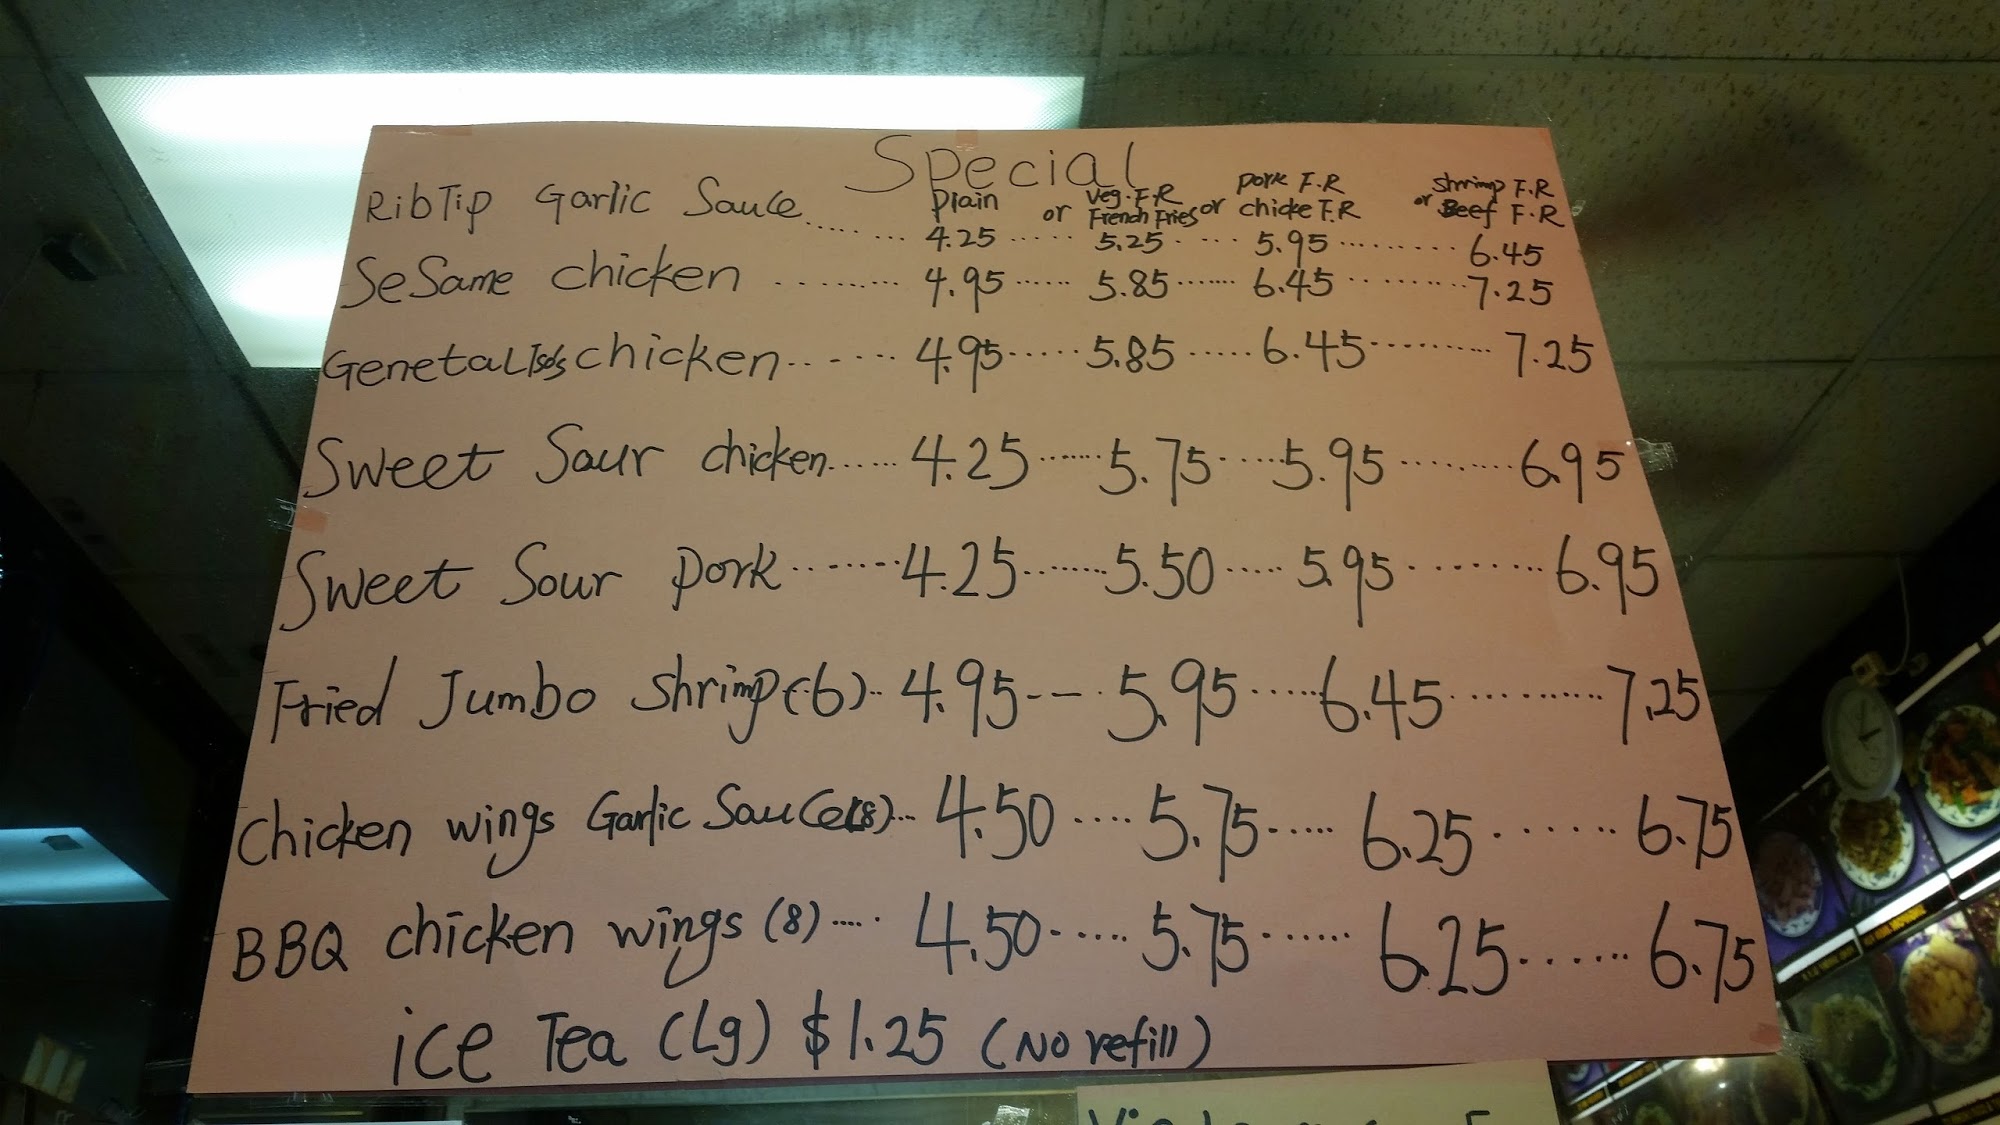 Special
Plain or Veg. F.R French Fries or pork F.R chicke F.R or shrimp F.R Beef F.R
RibTip Garlic Sauce ..... ... 4.25 ..... 5.25 .... 5.95 ......... 6.45
SeSame chicken ......... 4.95 ...... 5.85 ....... 6.45 ......... 7.25
GenetaL Tso's chicken ....... 4.95 ..... 5.85 ..... 6.45 .......... 7.25
Sweet Saur chicken ...... 4.25 ...... 5.75 ..... 5.95 ......... 6.95
Sweet Sour pork ....... 4.25 ....... 5.50 ..... 5.95 ........ 6.95
Fried Jumbo shrimp (6) .. 4.95 -- . 5.95 ..... 6.45 ........... 7.25
Chicken wings Garlic Sauce (8) ... 4.50 .... 5.75 ..... 6.25 ....... 6.75
BBQ chicken wings (8) ..... 4.50 ..... 5.75 ...... 6.25 ...... 6.75
ice Tea (Lg) $1.25 (No refill)